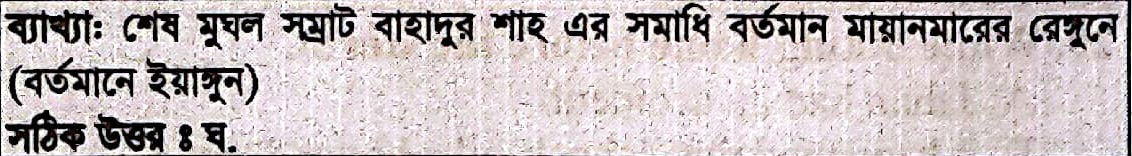 ব্যাখ্যাঃ শেষ মুঘল সম্রাট বাহাদুর শাহ এর সমাধি বর্তমান মায়ানমারের রেঙ্গুনে
(বর্তমানে ইয়াঙ্গুন)
সঠিক উত্তর ঃ ঘ.